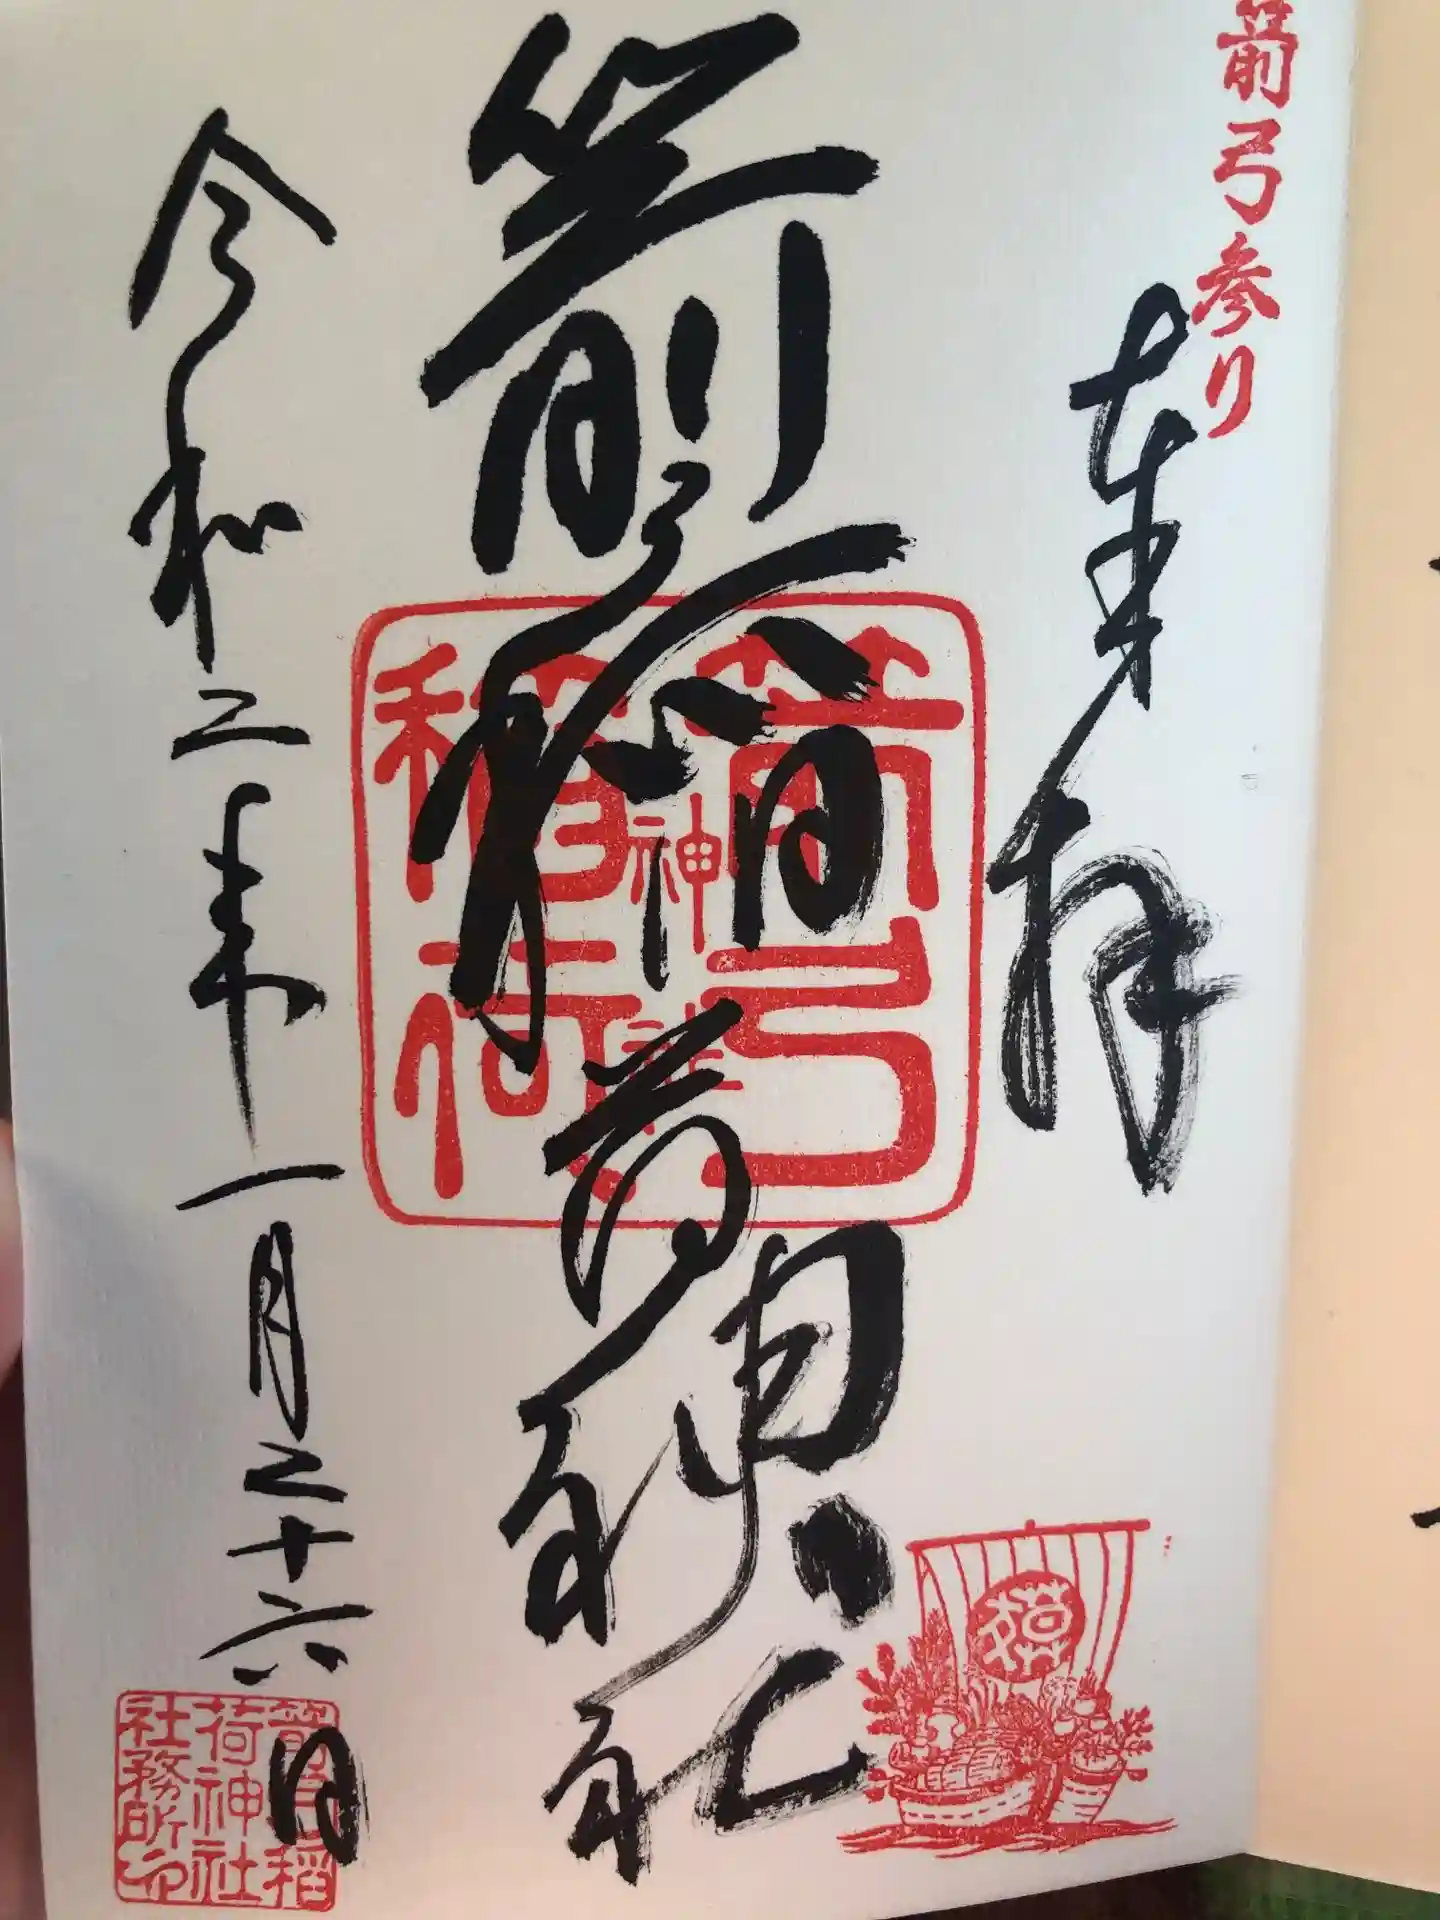 箭弓参り
奉拝
箭弓稲荷神社
箭弓
神社
稲荷
令和二年一月二十六日
箭弓稲
荷神社
社務所印